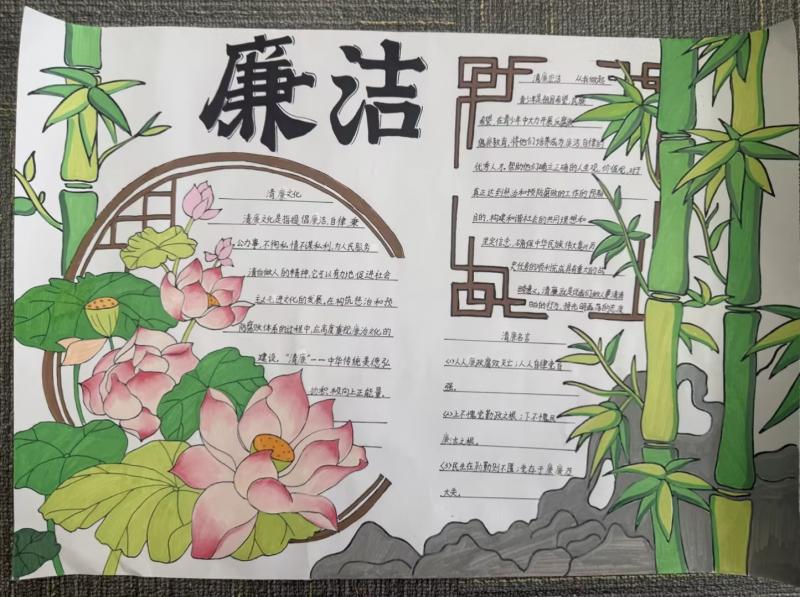 廉洁
清廉文化
清廉文化是指提倡廉洁,自律,秉
公办事,不徇私情不谋私利,为人民服务
清白做人的精神,它可以有力地促进社会
主义先进文化的发展,在构筑惩治和预
防腐败体系的过程中,应高度重视廉洁文化的
建设,“清廉”——中华传统美德弘
扬积极向上正能量。
清廉 从我做起
青少年是祖国希望,民族
希望,在青少年中大力开展反腐
倡廉教育,将他们培养成为廉洁,自律的
优秀人才,帮助他们确立正确的人生观,价值观,对于
真正达到惩治和预防腐败的工作的预期
目的,构建和谐社会的共同理想和
坚定信念,确保中华民族伟大复兴历
史任务的顺利完成具有重大的战
略意义。清廉
清廉名言
(1)人人廉政腐败灭亡;人人自律党自
强。
(2)上不愧党勤政之根;下不愧民
廉洁之根。
(3)民生在勤勤则不匮;
大失。